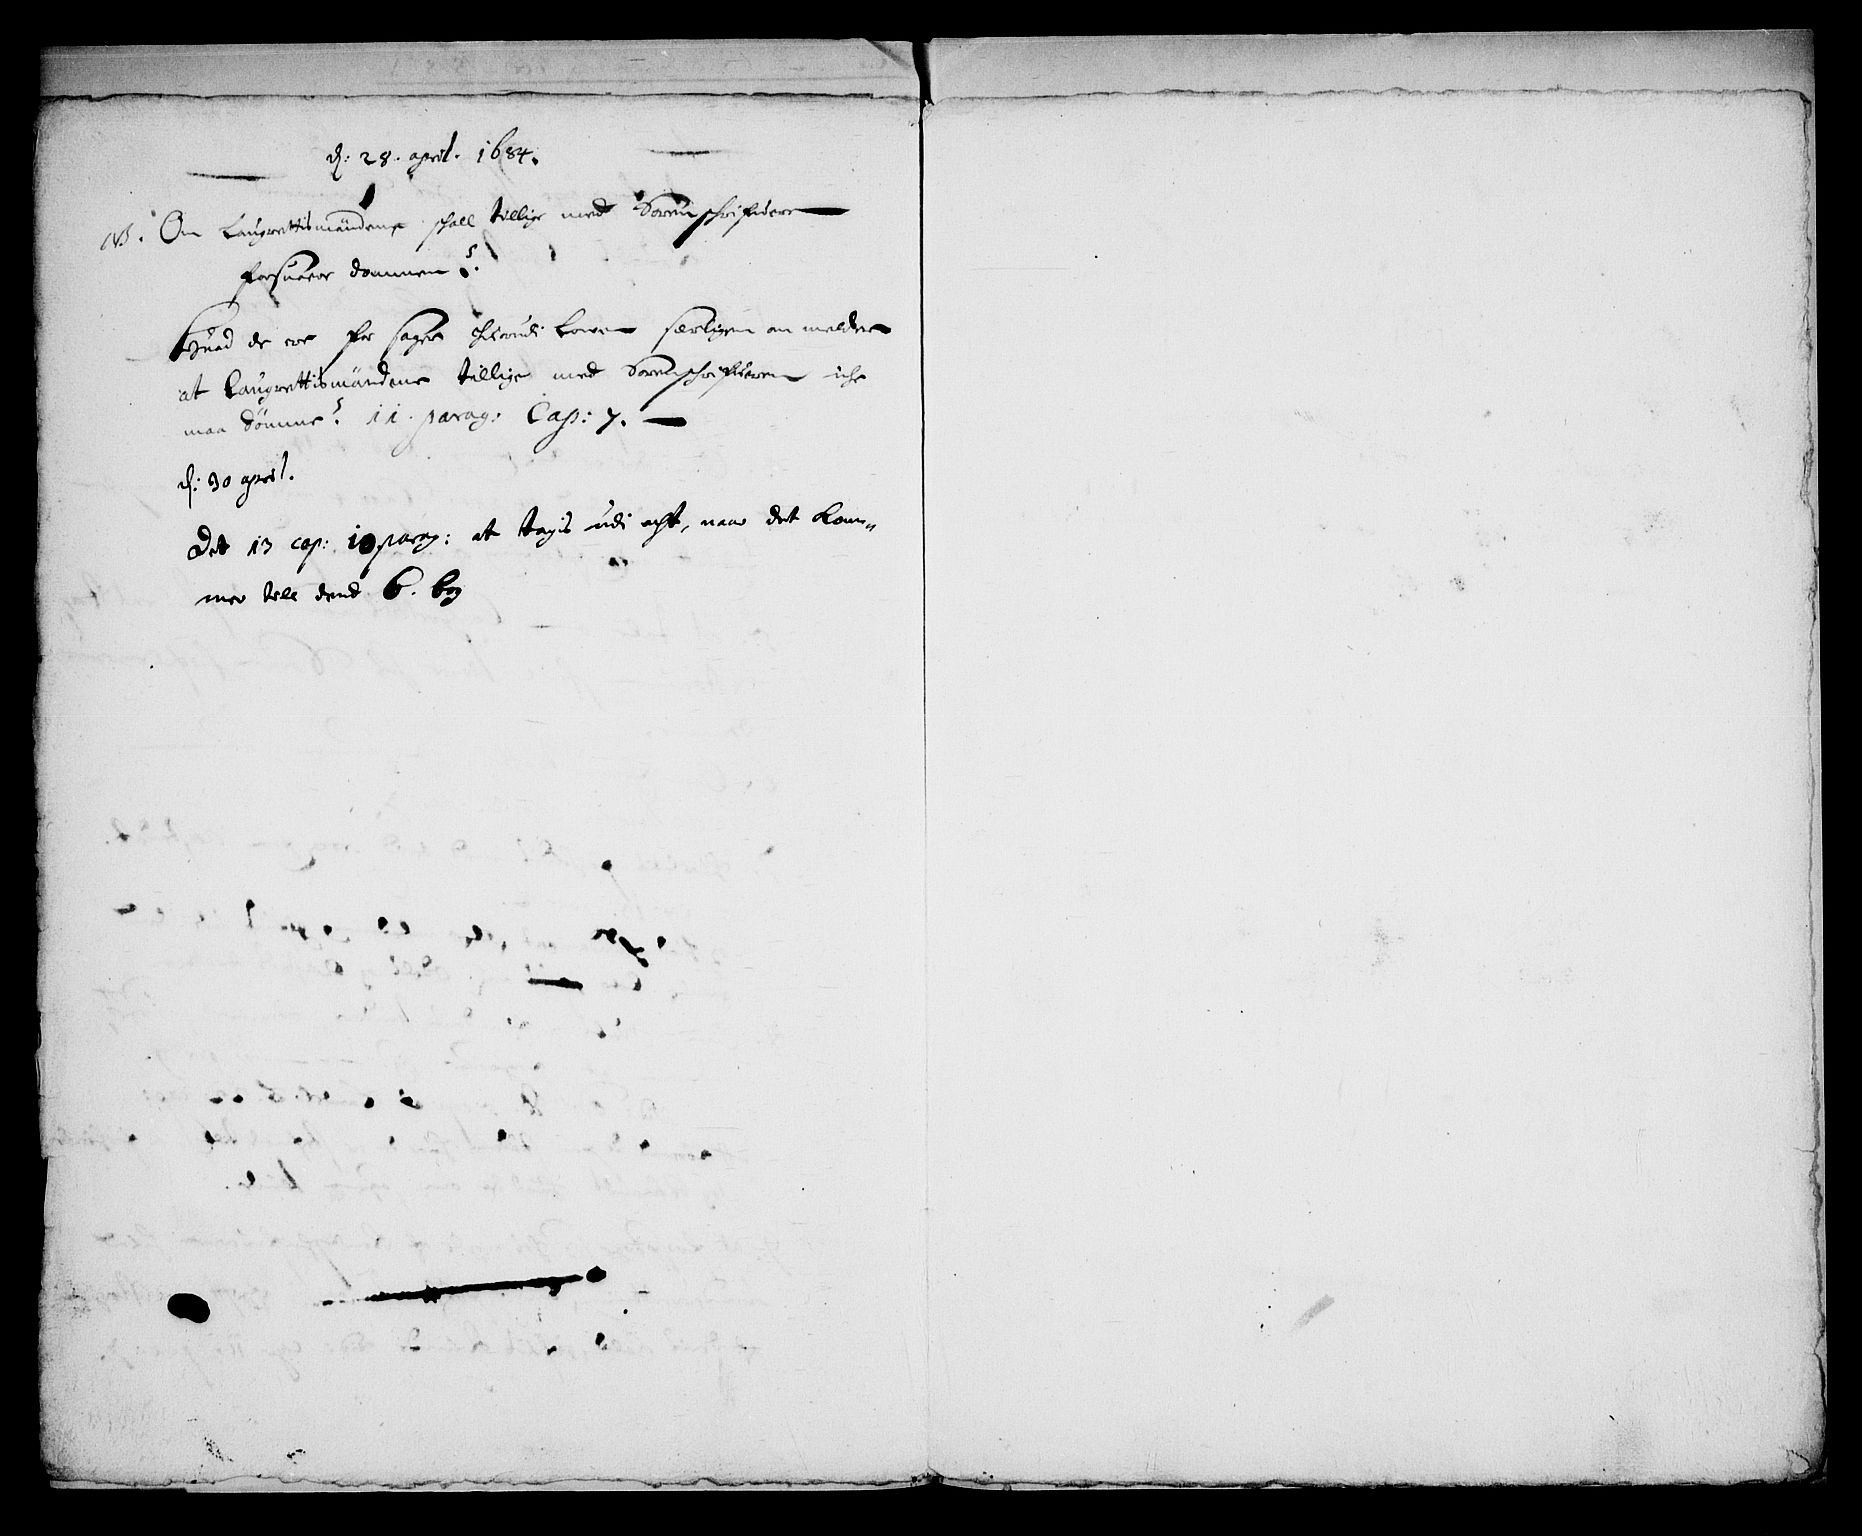 d: 28. april. 1684.
NB. Om Laugrettismändene schall tillige med Sorenschrifuere
forsuare dommen?
Huad de ere for sager huorudi Lowen særligen om melder
at Laugrettismändene tillige med Sorenschrifueren iche
maa dömme? 11. parag: Cap: 7.
d: 30 april.
Det 13 cap: 10 parag: at tagis udi acht, naar det kom„
mer till dend 6. bog